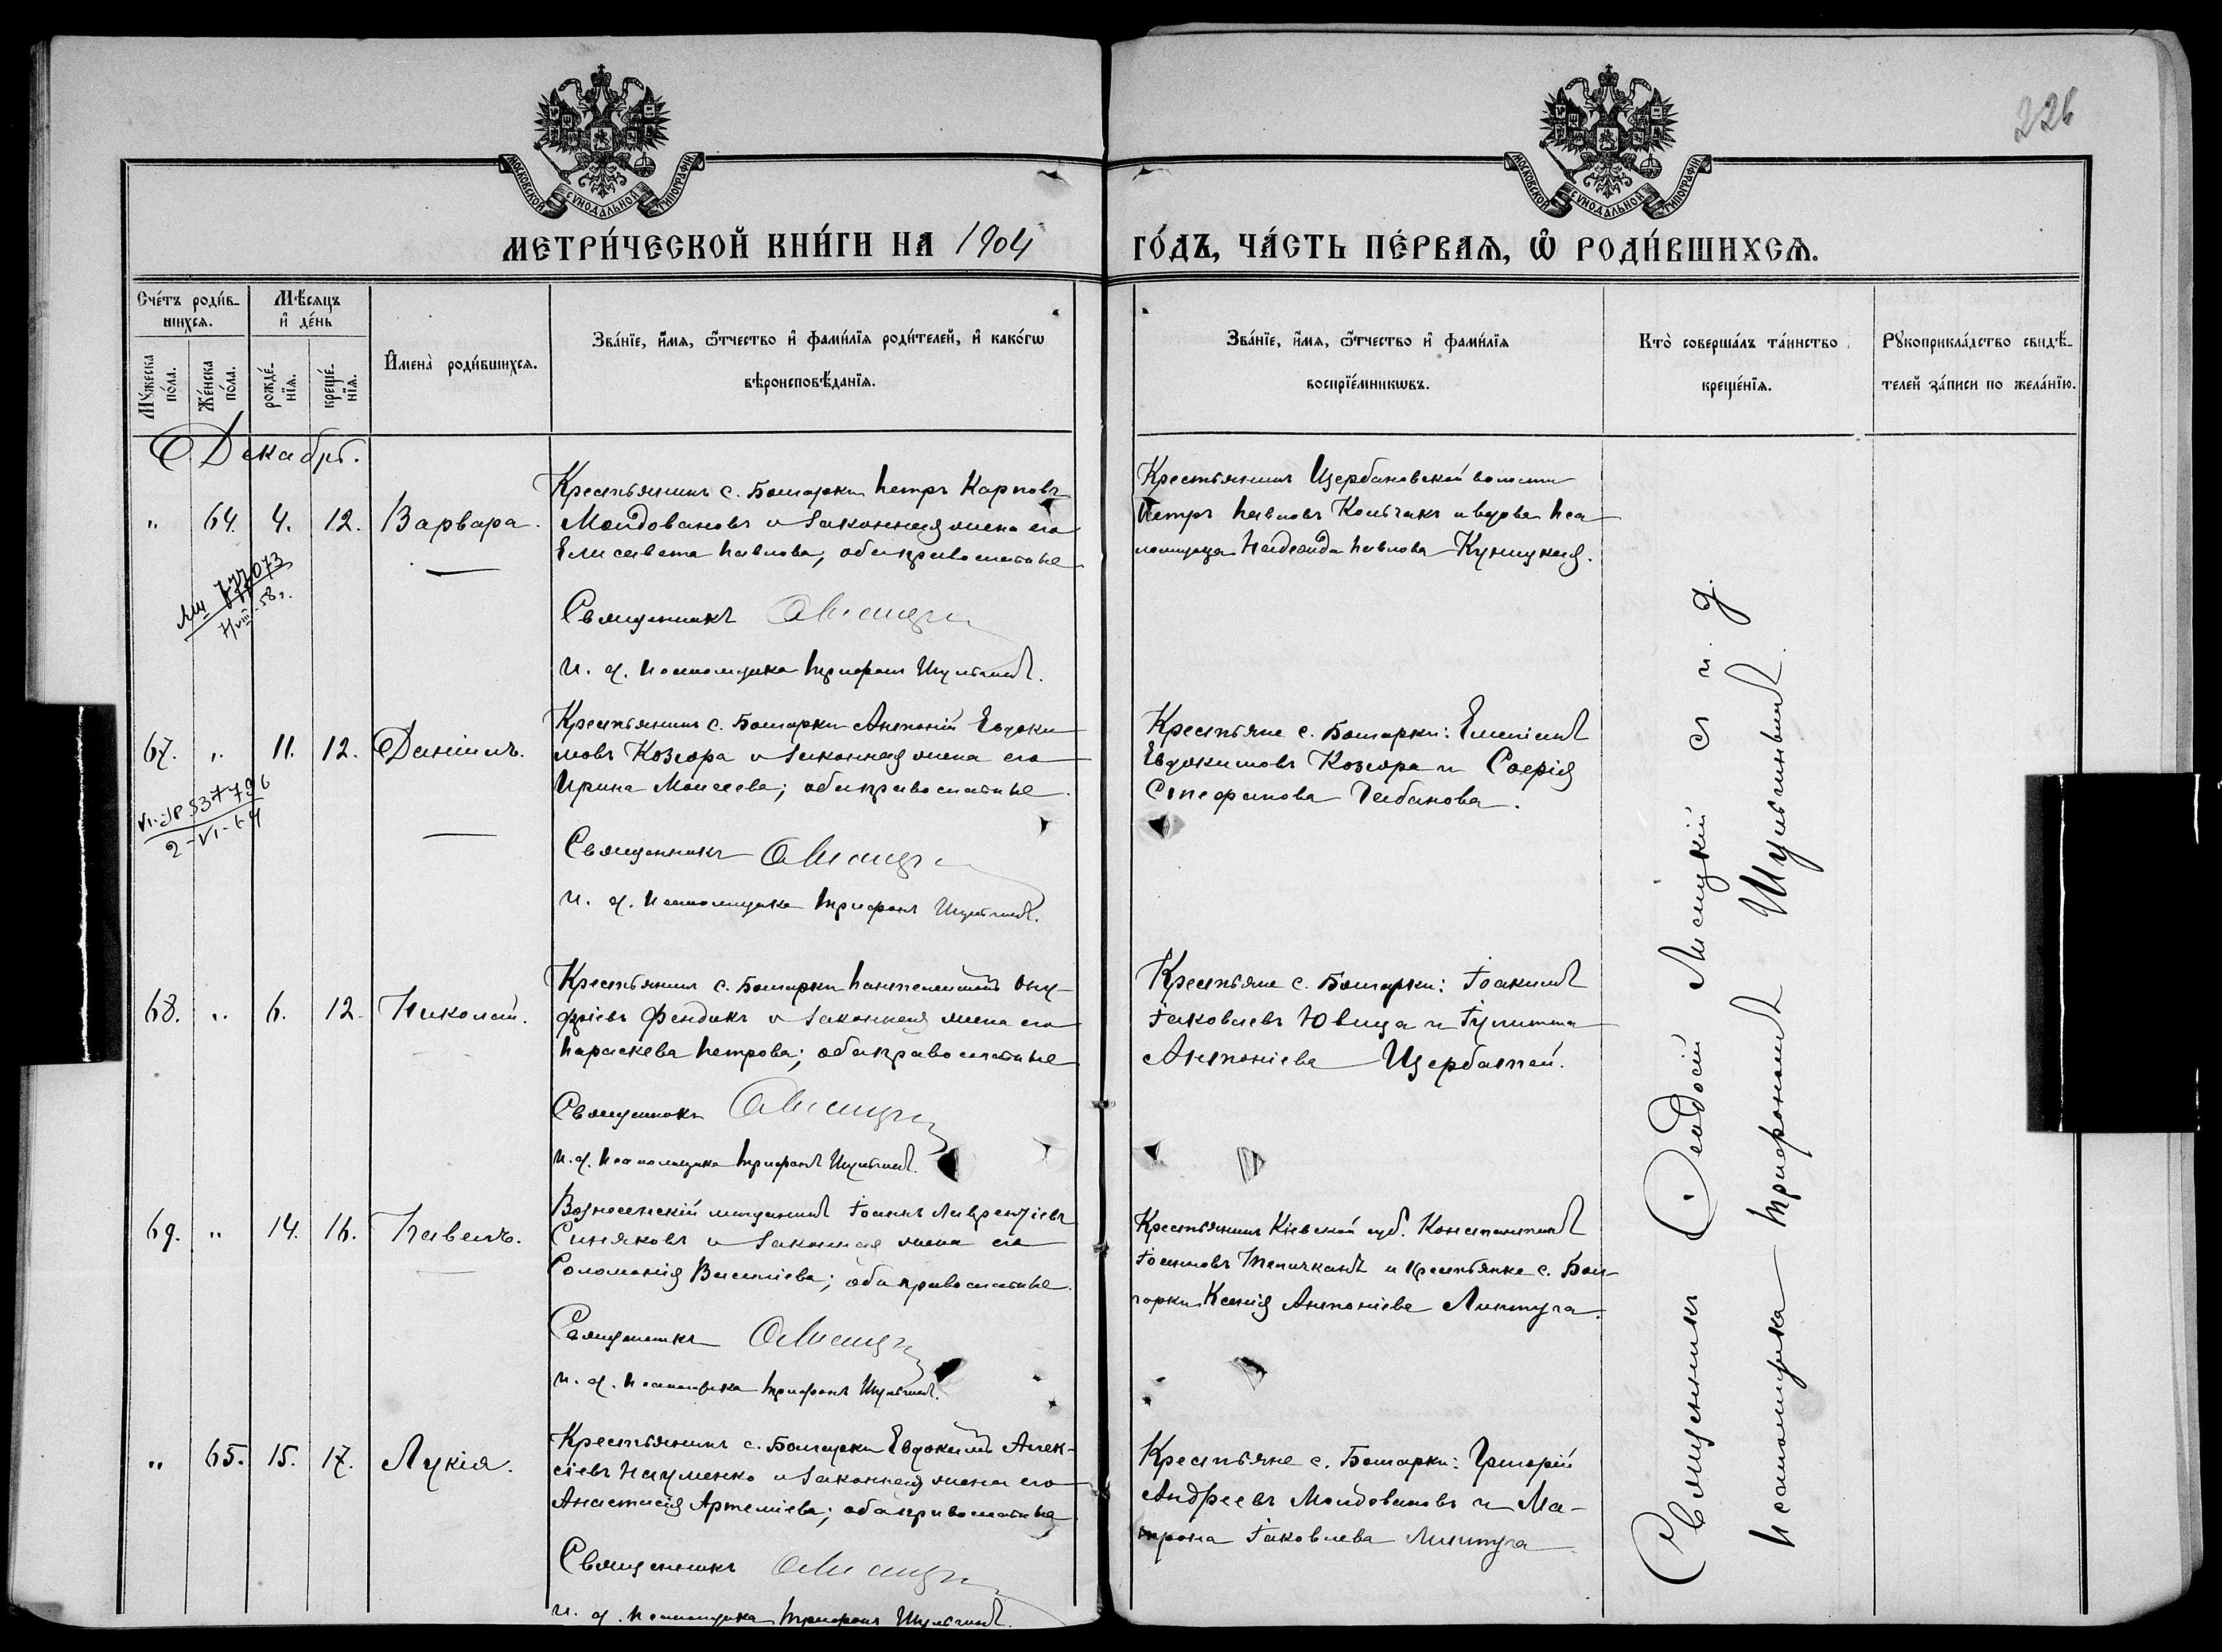 226
МОСКОВСКОЙ СѴНОДАЛЬНОЙ ТИПОГРАФІИ
МОСКОВСКОЙ СѴНОДАЛЬНОЙ ТИПОГРАФІИ
МЕТРИ́ЧЕСКОЙ КНИ́ГИ НА 1904 ГО́ДЪ, ЧА́СТЬ ПЕ́РВАѦ, Ѽ РОДИ́ВШИХСѦ.
Сче́тъ роди́в-
шихсѧ.
Мꙋ́жеска по́ла.
Же́нска по́ла.
Мѣ́сѧцъ и҆ де́нь
рожде́-нїѧ.
креще́-нїѧ.
И҆мена̀ роди́вшихсѧ.
Зва́нїе, и҆́мѧ, ѻ҆́тчество и҆ фами́лїѧ роди́телей, и҆ како́гѡ
вѣроисповѣ́данїѧ.
Зва́нїе, и҆́мѧ, ѻ҆́тчество и҆ фами́лїѧ
воспрїе́мникѡвъ.
Кто̀ соверша́лъ та́инство
креще́нїѧ.
Рꙋкоприкла́дство свидѣ́-
телей за́писи по жела́нїю.
Декабрь.
" 64. 4. 12. Варвара.
Крестьянинъ с. Болгарки Петръ Карповъ
Молдовановъ и законная жена его
Елисавета Павлова; оба православные
Священникъ
и. д. псаломщика Трифонъ Шульгинъ.
Крестьянинъ Щербановской волости
Петръ Павловъ Колчакъ и вдова пса
ломщица Надежда Павлова Куницкая.
777073
58 г.
67. " 11. 12. Даніилъ.
Крестьянинъ с. Болгарки Антоній Евдоки
мовъ Козюра и законная жена его
Ирина Моисеева; оба православные.
Священникъ
и. д. псаломщика Трифонъ Шульгинъ.
Крестьяне с. Болгарки:
Евдокимовъ Козюра и Софія
Стефанова Табанова.
537796
2-VI-64
68. " 6. 12. Николай.
Крестьянинъ с. Болгарки Пантелеимонъ Ону-
фріевъ Фендикъ и законная жена его
Параскева Петрова; оба православные
Священникъ
и. д. псаломщика Трифонъ Шульгинъ.
Крестьяне с. Болгарки: Іоакимъ
Іаковлевъ Ювица и Іулитта
Антоніева Щербатей.
69. " 14. 16. Павелъ.
Вознесенскій мещанинъ Іоаннъ Лаврентіевъ
Синяковъ и законная жена его
Соломонія Василіева; оба православные.
Священникъ
и. д. псаломщика Трифонъ Шульгинъ.
Крестьянинъ Кіевской губ. Константинъ
и крестьянка с. Бол-
гарки Ксенія Антоніева Линтуга.
" 65. 15. 17. Лукія.
Крестьянинъ с. Болгарки Евдокимъ Алек-
сіевъ Науменко и законная жена его
Анастасія Артеміева; оба православные
Священникъ
и. д. псаломщика Трифонъ Шульгинъ.
Крестьяне с. Болгарки: Григорій
Андреевъ Молдовановъ и Ма-
трона Іаковлева Линтуга
Священникъ Ѳеодосій Лисицкій съ и. д.
псаломщика Трифономъ Шульгинымъ.